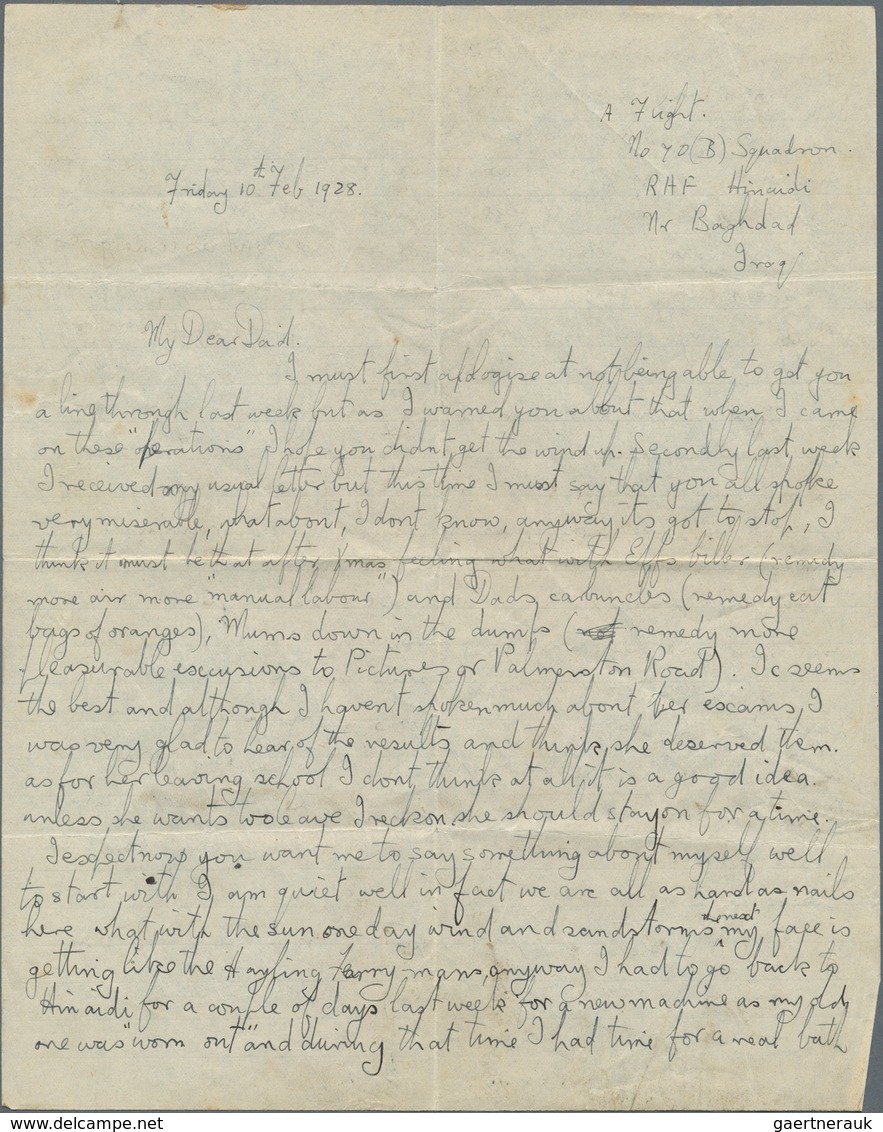 A Flight.
No 70(B) Squadron.
Friday 10th Feb 1928.
RAF Hinaidi
Nr Baghdad
Iraq
My Dear Dad.
I must first apologise at not being able to get you
a line through last week but as I warned you about that when I came
on these "operations" I hope you didnt get the wind up. Secondly last week
I received my usual letter but this time I must say that you all spoke
very miserable, what about, I dont know, anyway its got to stop, I
think it must be that after Xmas feeling what with Effs biller (remedy
more air more "manual labour") and Dads carbuncles (remedy eat
bags of oranges), Mums down in the dumps ( remedy more
pleasurable escusions to Pictures or Palmerston Road). Ic seems
the best and although I havent spoken much about her escams, I
was very glad to hear of the results and think she deserved them.
as for her leaving school I dont think at all it is a good idea.
unless she wants to leave I reckon she should stay on for a time.
I expect now you want me to say something about myself, well
to start with I am quiet well in fact we are all as hard as nails
here what with the sun one day wind and sandstorms the next my face is
getting like the Hayling Ferry-mans, anyway I had to go back to
Hinaidi for a couple of days last week for a new machine as my old
one was "worn out" and during that time I had time for a real bath
www.delcampe.net
gaertnerauk